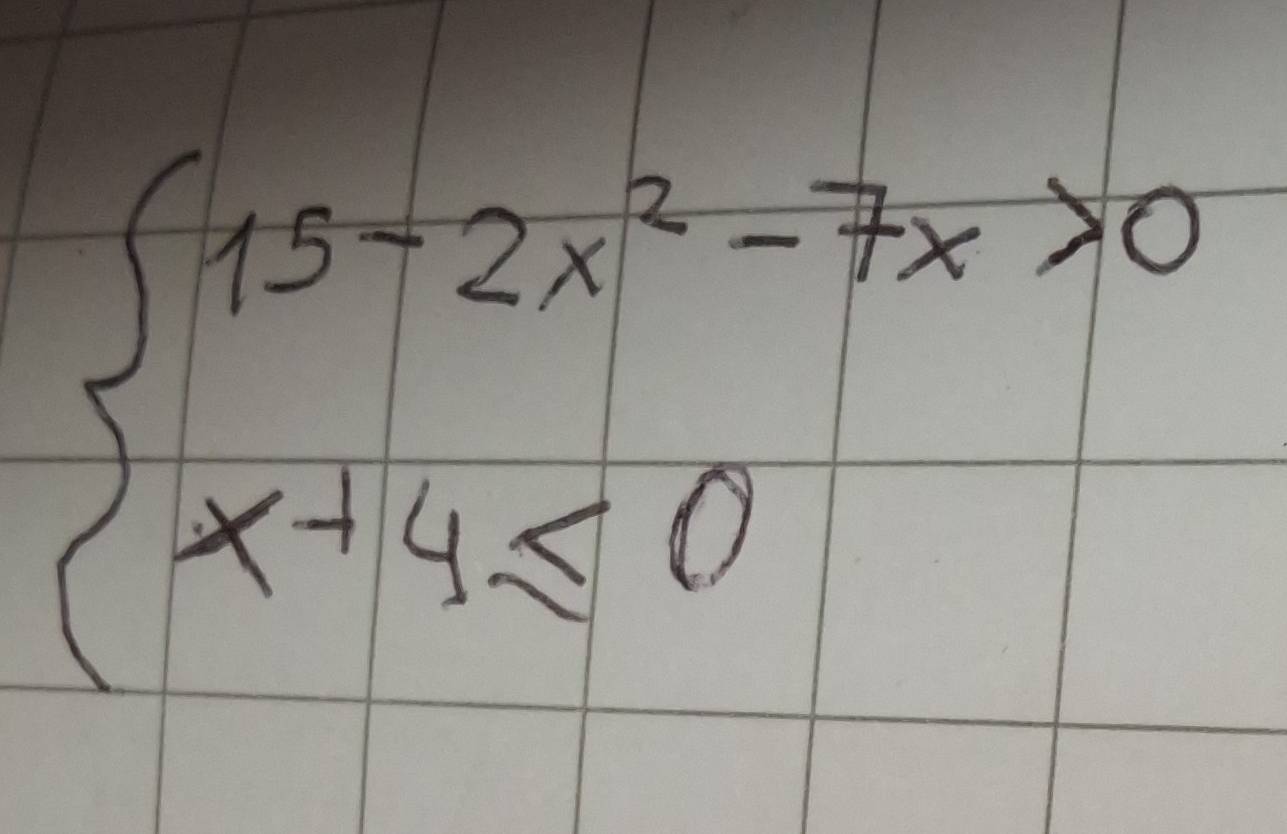 15 - 2x² - 7x > 0
x + 4 ≤ 0